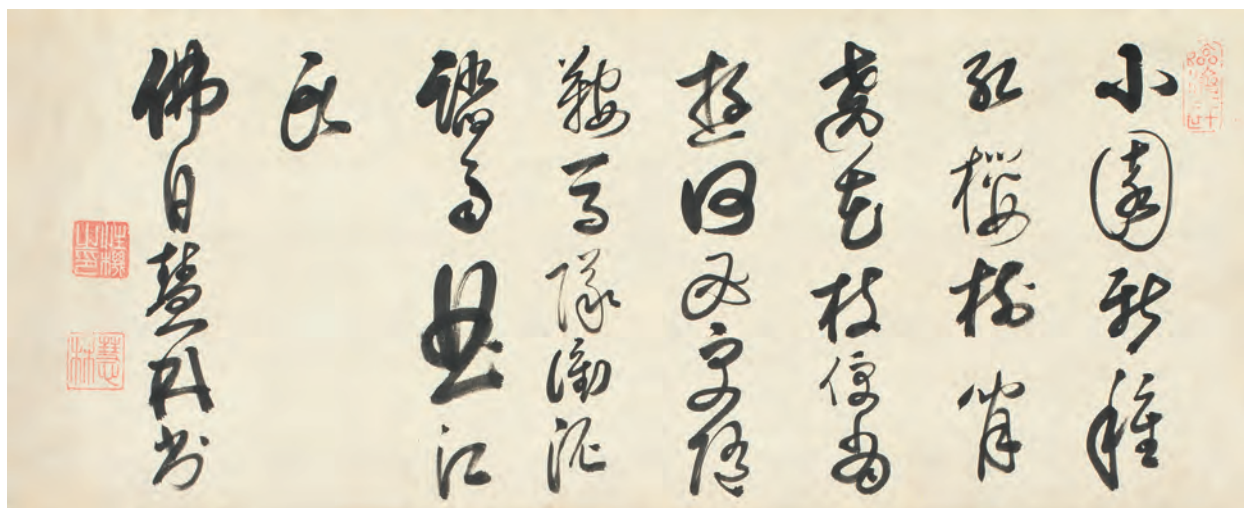 小園新種
紅櫻樹閒
遶花枝便當
遊何必更隨
鞍馬隊衝泥
蹋雨曲江
頭
佛日慧林書
性機之印
慧林